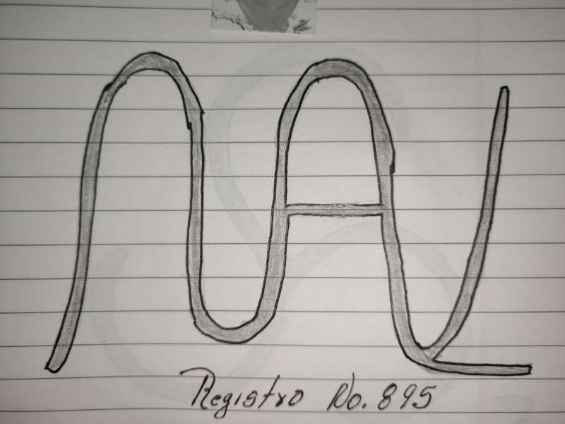 Registro No. 895